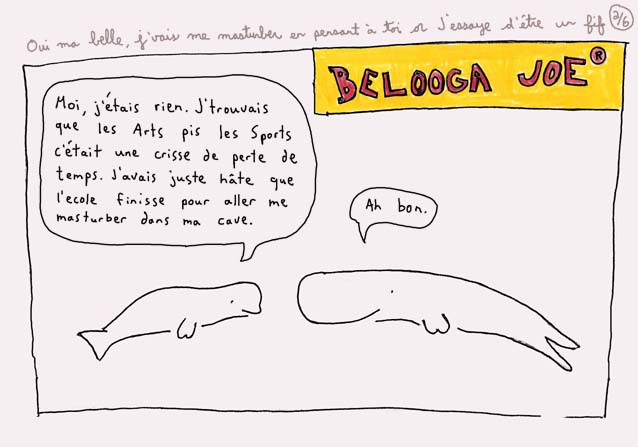 Oui ma belle, j'vais me masturber en pensant à toi or J'essaye d'être un fif 2/6
BELOOGA JOE®
Moi, j'étais rien. J'trouvais
que les Arts pis les Sports
c'était une crisse de perte de
temps. J'avais juste hâte que
l'ecole finisse pour aller me
masturber dans ma cave.
Ah bon.